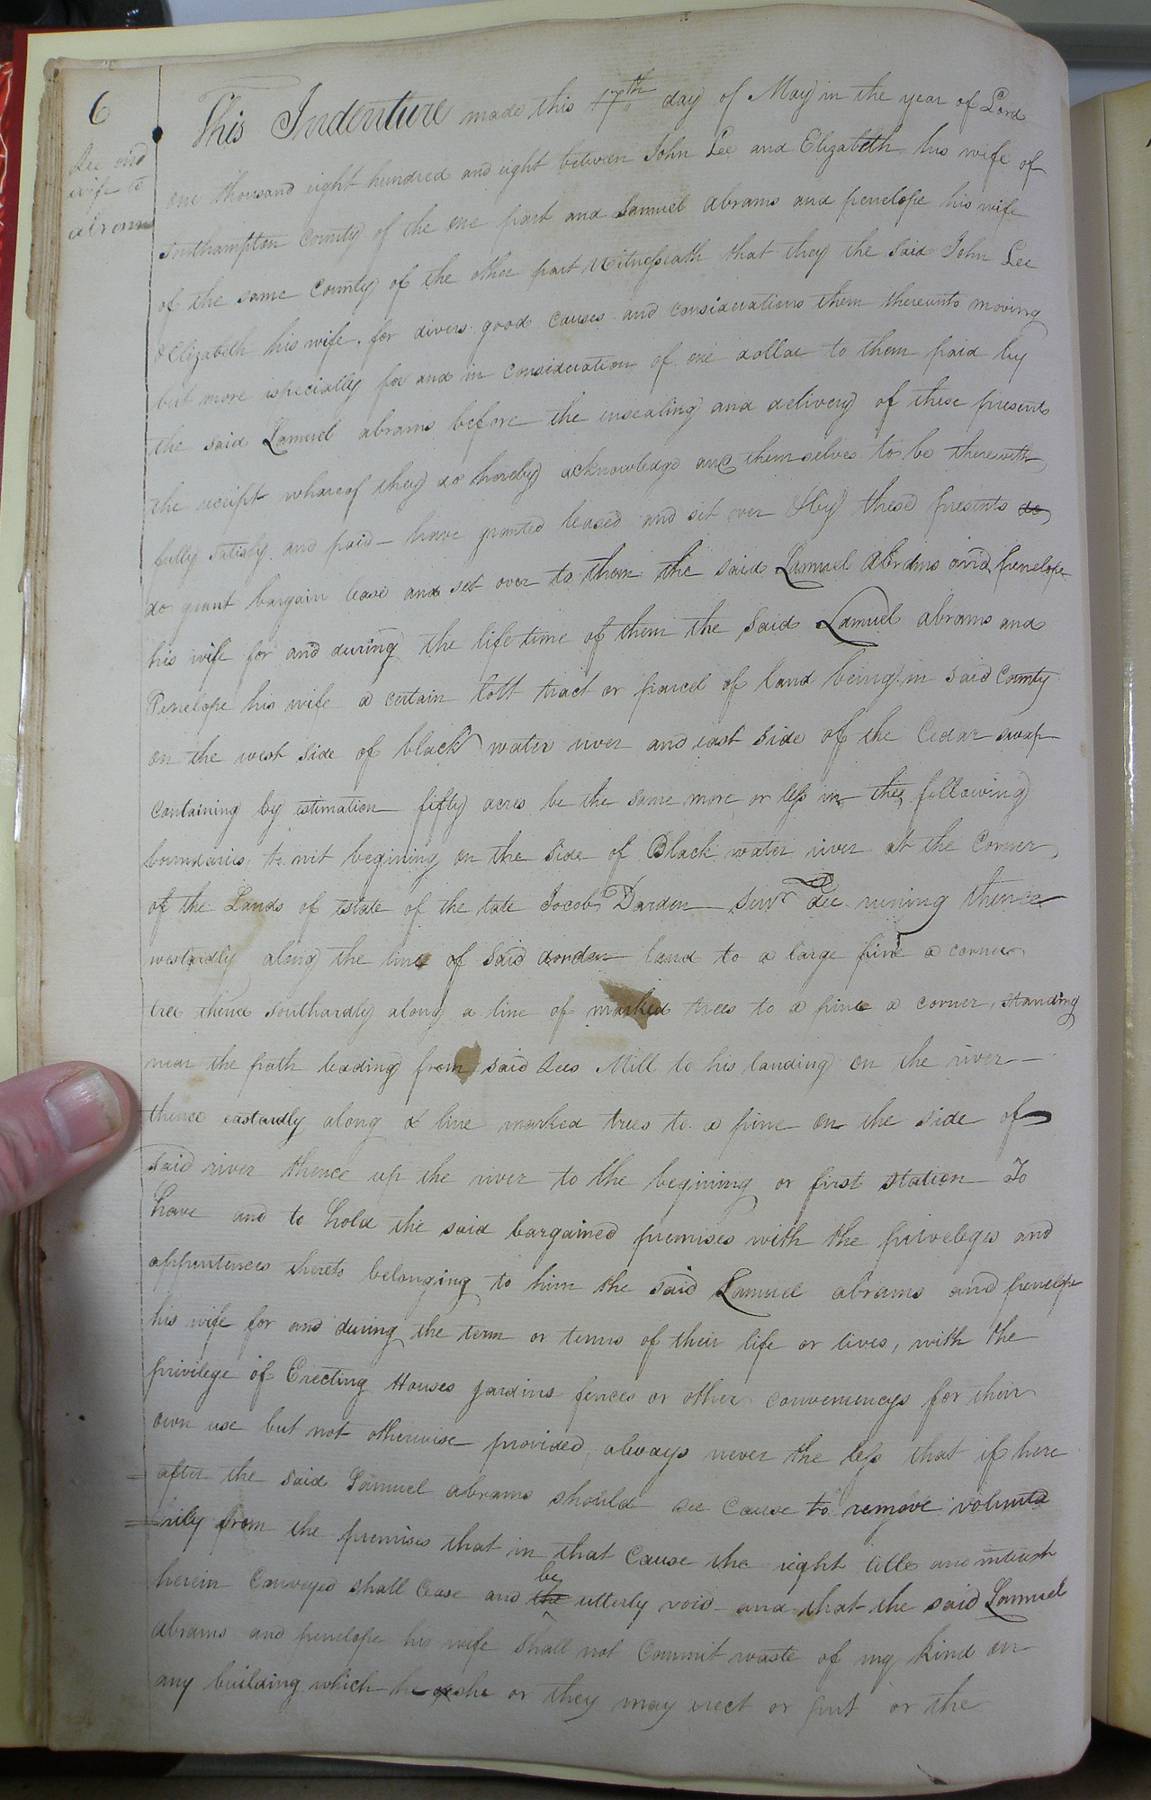 6
Lee and
wife to
abrams
This Indenture made this 17th day of May in the year of Lord
one thousand eight hundred and eight between John Lee and Elizabeth his wife of
Southampton County of the one part and Samuel abrams and penelope his wife
of the same County of the other part Witnesseath that they the said John Lee
& Elizabeth his wife, for divers good causes and considerations them thereunto moving
but more especially for and in consideration of one dollar to them paid by
the said Samuel abrams before the ensealing and delivery of these presents
the receipt whareof they do hereby acknowledge and themselves to be therewith
fully satisfy and paid - have granted leased and set over & by these presents do
do grant bargain lease and set over to them the said Samuel Abrams and penelope
his wife for and during the life time of them the said Samuel abrams and
Penelope his wife a certain lott tract or parcel of land being in said County
on the west side of black water river and east side of the Cedar swap
containing by estimation fifty acres be the same more or less in the following
boundaries to wit begining on the side of Black water river at the Corner
of the Lands of estate of the late Jocob Darden Senr Dec runing thence
westardly along the line of said dordan land to a large pine a corner
tree thence southardly along a line of marked trees to a pine a corner standing
near the path leading from said Lees Mill to his landing on the river -
thence eastardly along a line marked trees to a pine on the side of
said river thence up the river to the begining or first station To
have and to hold the said bargained premises with the priveleges and
appurtences thereto belonging to him the said Samuel abrams and penelope
his wife for and during the term or terms of their life or lives, with the
privilege of Erecting Houses gardins fences or other conveniencys for their
own use but not otherwise provided always never the less that if here
= after the said Samuel abrams should see Cause to remove volunta
= rily from the premises that in that Cause the right title and intrest
herein Conveyed shall Cease and the be utterly void and that the said Samuel
abrams and penelope his wife shall not Commit waste of my kind on
any building which he or she or they may erect or put or the